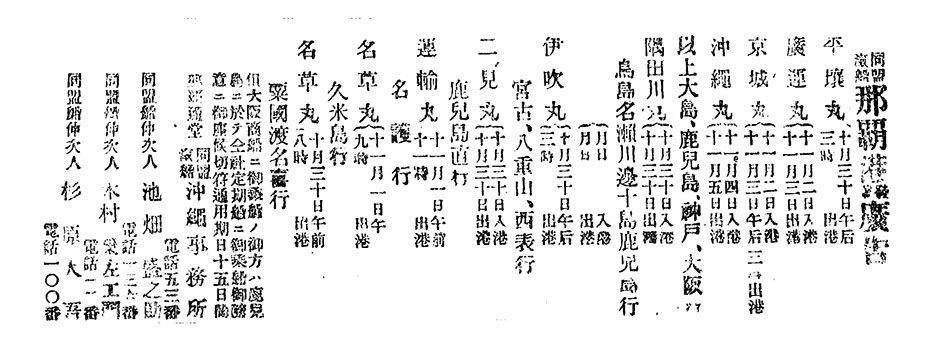 同盟滊船 那覇港出帆廣告
平壤丸 十月三十日午后三時出港
廣運丸 十一月二日入港 十一月三日出港
京城丸 十一月二日入港 十一月三日午后三時出港
沖繩丸 十一月四日入港 十一月五日出港
以上大島、鹿兒島、神戸、大阪行
隅田川丸 十月三十日入港 十月三十日出港
鳥島名瀬川邊十島鹿兒島行
月日入港 月日出港
伊吹丸 十月三十日午后三時出港
宮古、八重山、西表行
二見丸 十月三十日入港 十月三十日出港
鹿兒島直行
運輸丸 十一月一日午前十一時出港
名護行
名草丸 十一月一日午前九時出港
久米島行
名草丸 十月三十日午前八時出港
粟國渡名喜行
但大阪商船ニ御乘船ノ御方ハ鹿兒
島ニ於テ仝社定期船ニ御乘船御隨
意ニ御座候切符通用期日十五日間
通堂 同盟滊船 沖繩事務所
電話五三番
同盟船仲次人 池畑盛之助
電話一三
同盟船仲次人 木村榮左工門
電話一二番
同盟船仲次人 杉原久吾
電話一〇〇番